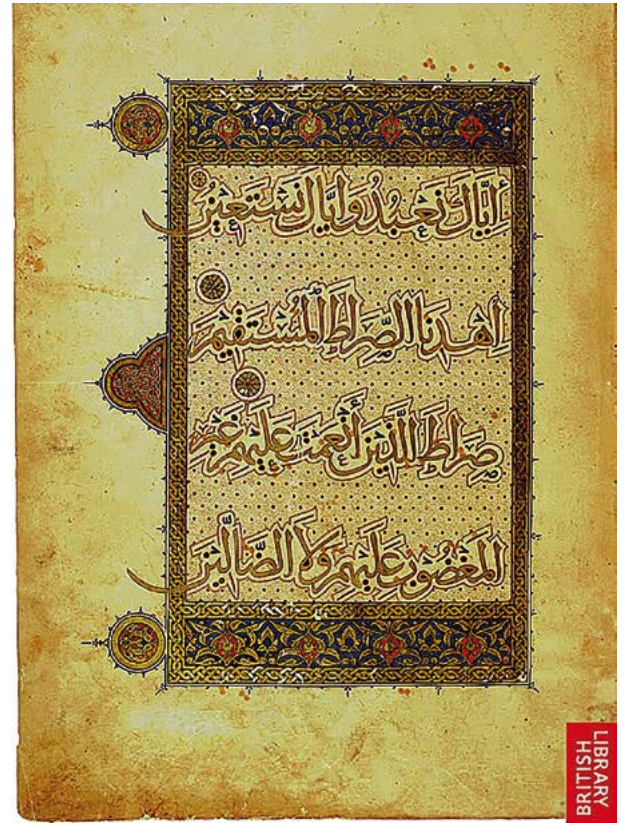 إِيَّاكَ نَعْبُدُ وَإِيَّاكَ نَسْتَعِينُ
اهْدِنَا الصِّرَاطَ الْمُسْتَقِيمَ
صِرَاطَ الَّذِينَ أَنْعَمْتَ عَلَيْهِمْ غَيْرِ
الْمَغْضُوبِ عَلَيْهِمْ وَلَا الضَّالِّينَ
BRITISH
LIBRARY